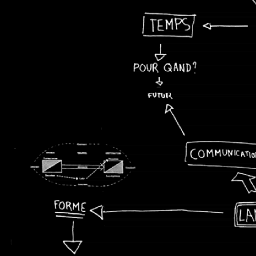 TEMPS
POUR QAND?
FUTUR
COMMUNICATION
FORME
LA